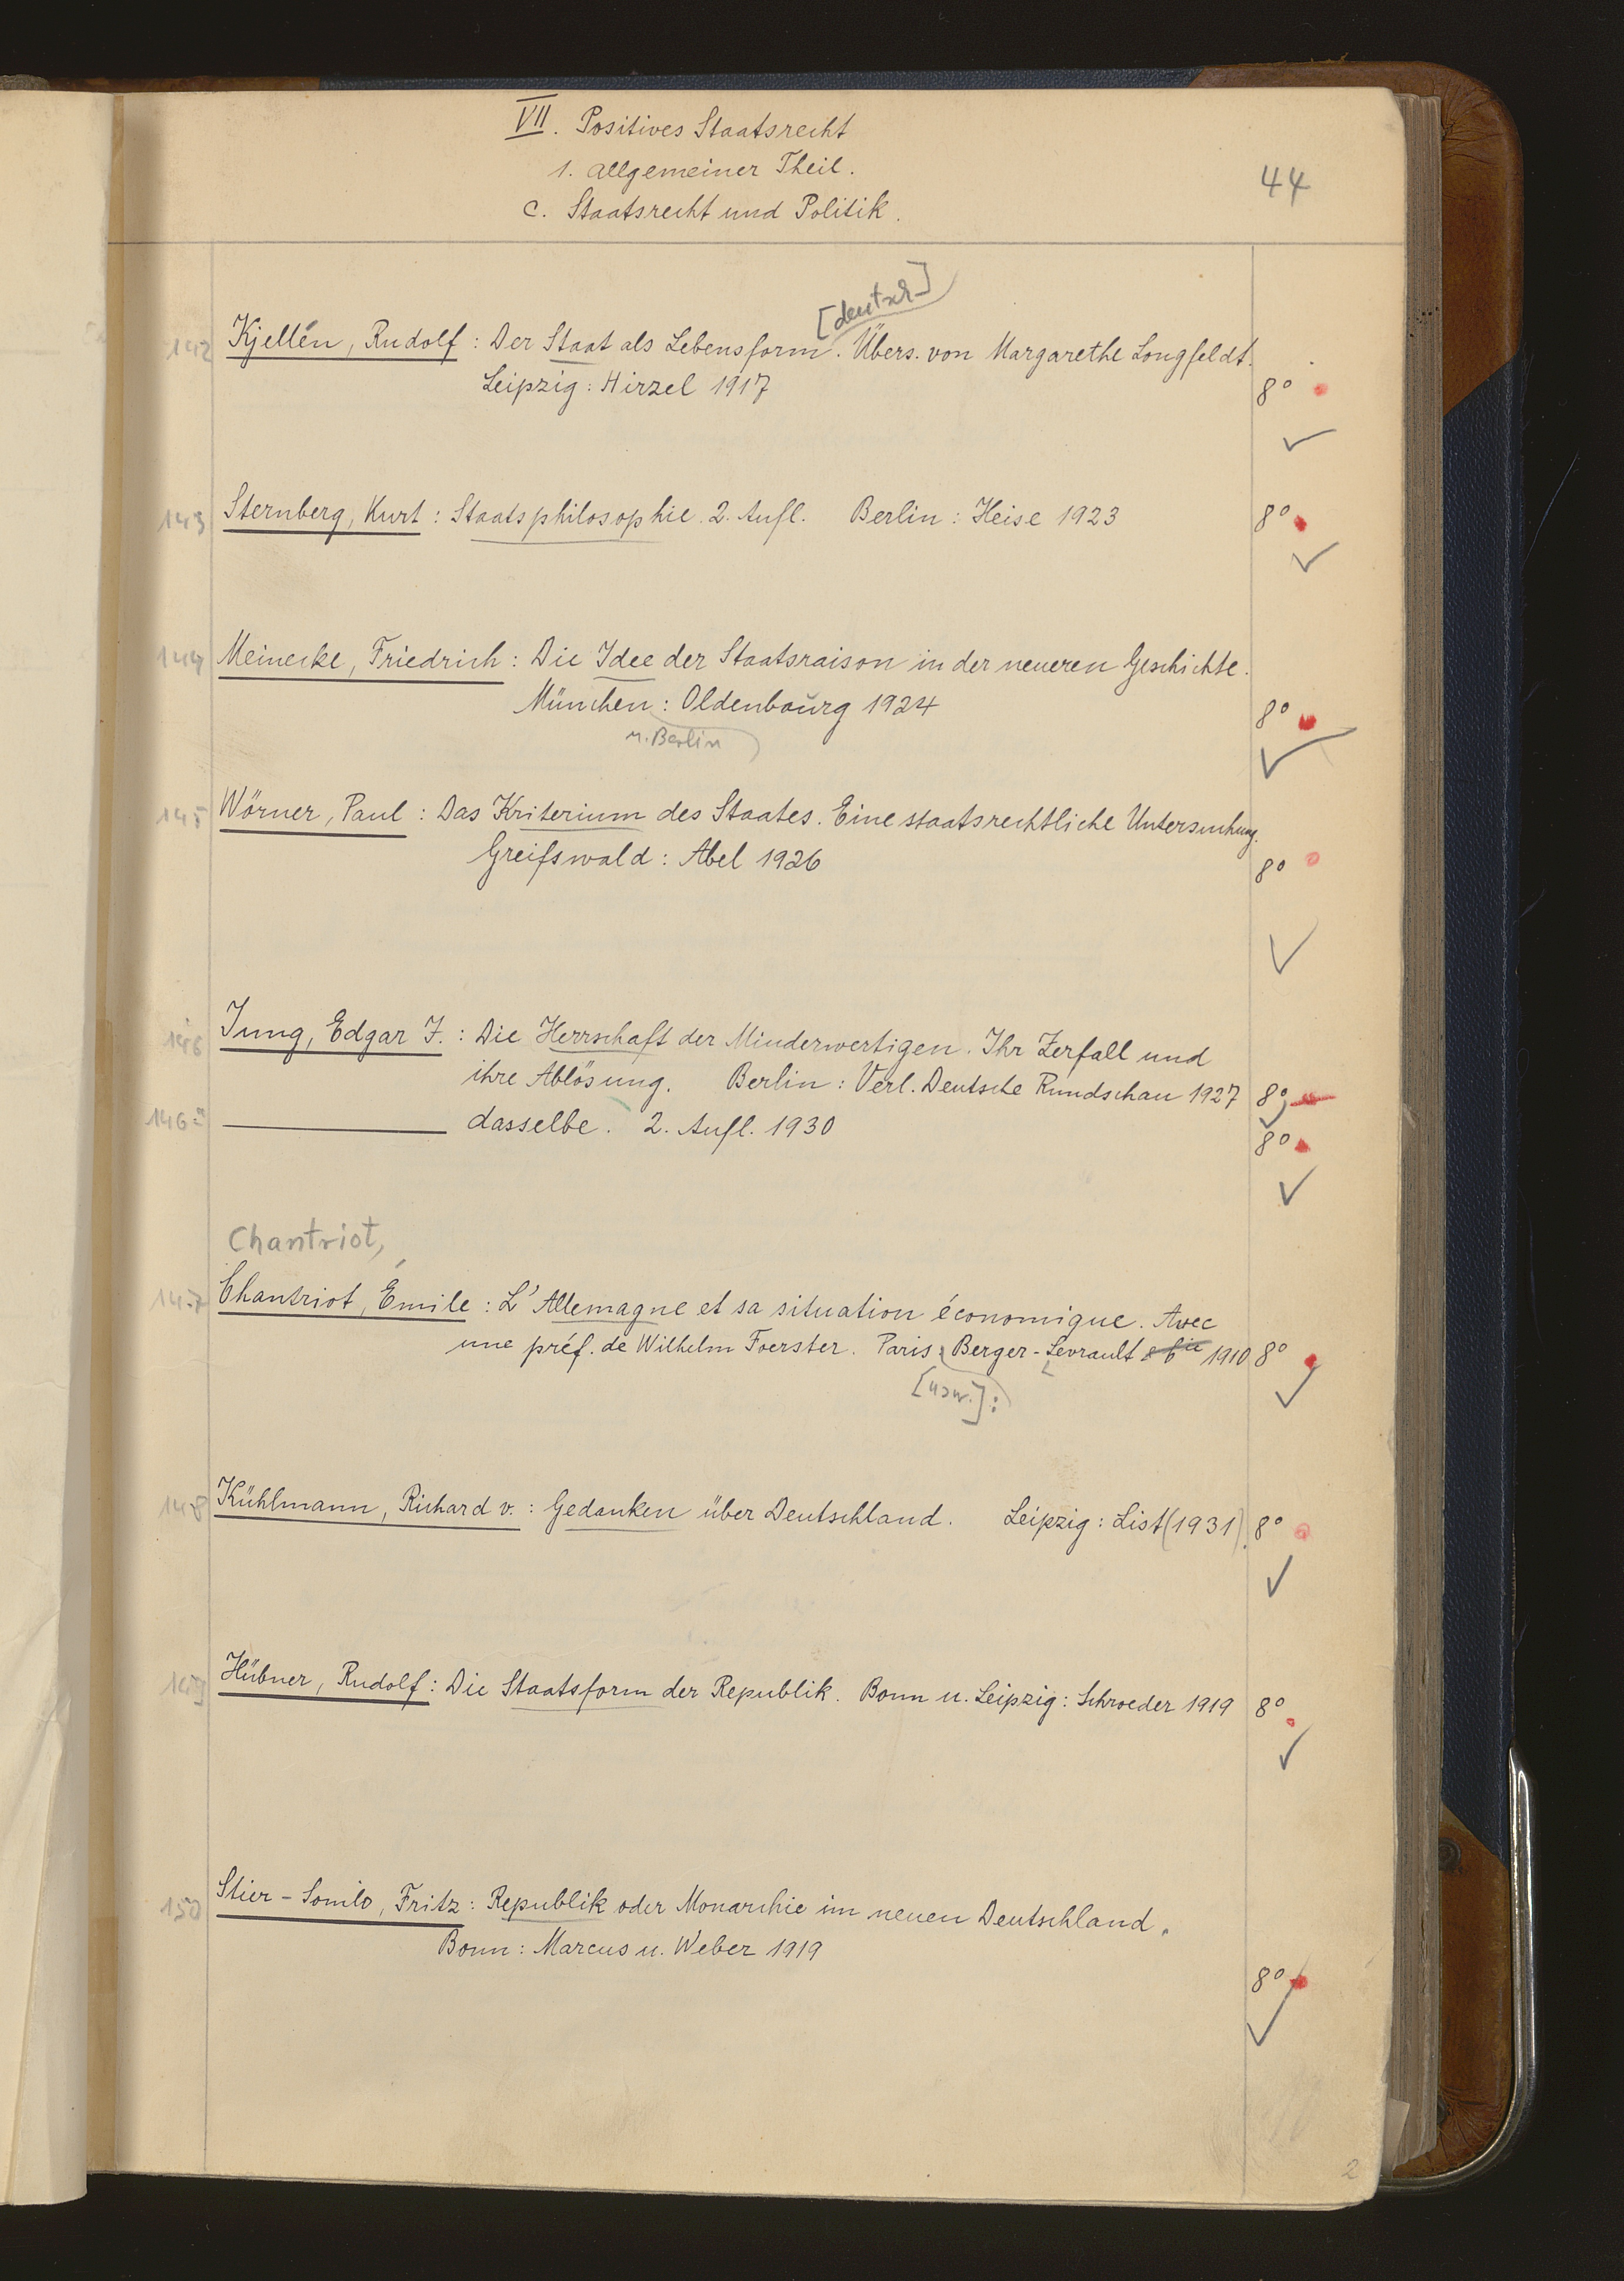 VII. Positives Staatsrecht
1. Allgemeiner Theil.
44
c. Staatsrecht und Politik.
[deutsch]
142 Kjellén, Rudolf : Der Staat als Lebensform. Übers. von Margarethe Longfeldt.
Leipzig : Hirzel 1917 8°
143 Sternberg, Kurt : Staatsphilosophie. 2. Aufl. Berlin : Heise 1923 8°
144 Meinecke, Friedrich : Die Idee der Staatsraison in der neueren Geschichte.
München : Oldenbourg 1924 8°
u. Berlin
145 Wörner, Paul : Das Kriterium des Staates. Eine staatsrechtliche Untersuchung.
Greifswald : Abel 1926 8°
146 Jung, Edgar J. : Die Herrschaft der Minderwertigen. Ihr Zerfall und
ihre Ablösung. Berlin : Verl. Deutsche Rundschau 1927 8°
146a dasselbe. 2. Aufl. 1930 8°
Chantriot,
147 Chantriot, Émile : L'Allemagne et sa situation économique. Avec
une préf. de Wilhelm Foerster. Paris : Berger-Levrault & Cie 1910 8°
[usw.]:
148 Kühlmann, Richard v. : Gedanken über Deutschland. Leipzig : List (1931). 8°
149 Hübner, Rudolf : Die Staatsform der Republik. Bonn u. Leipzig : Schroeder 1919 8°
150 Stier-Somlo, Fritz : Republik oder Monarchie im neuen Deutschland.
Bonn : Marcus u. Weber 1919
8°
2